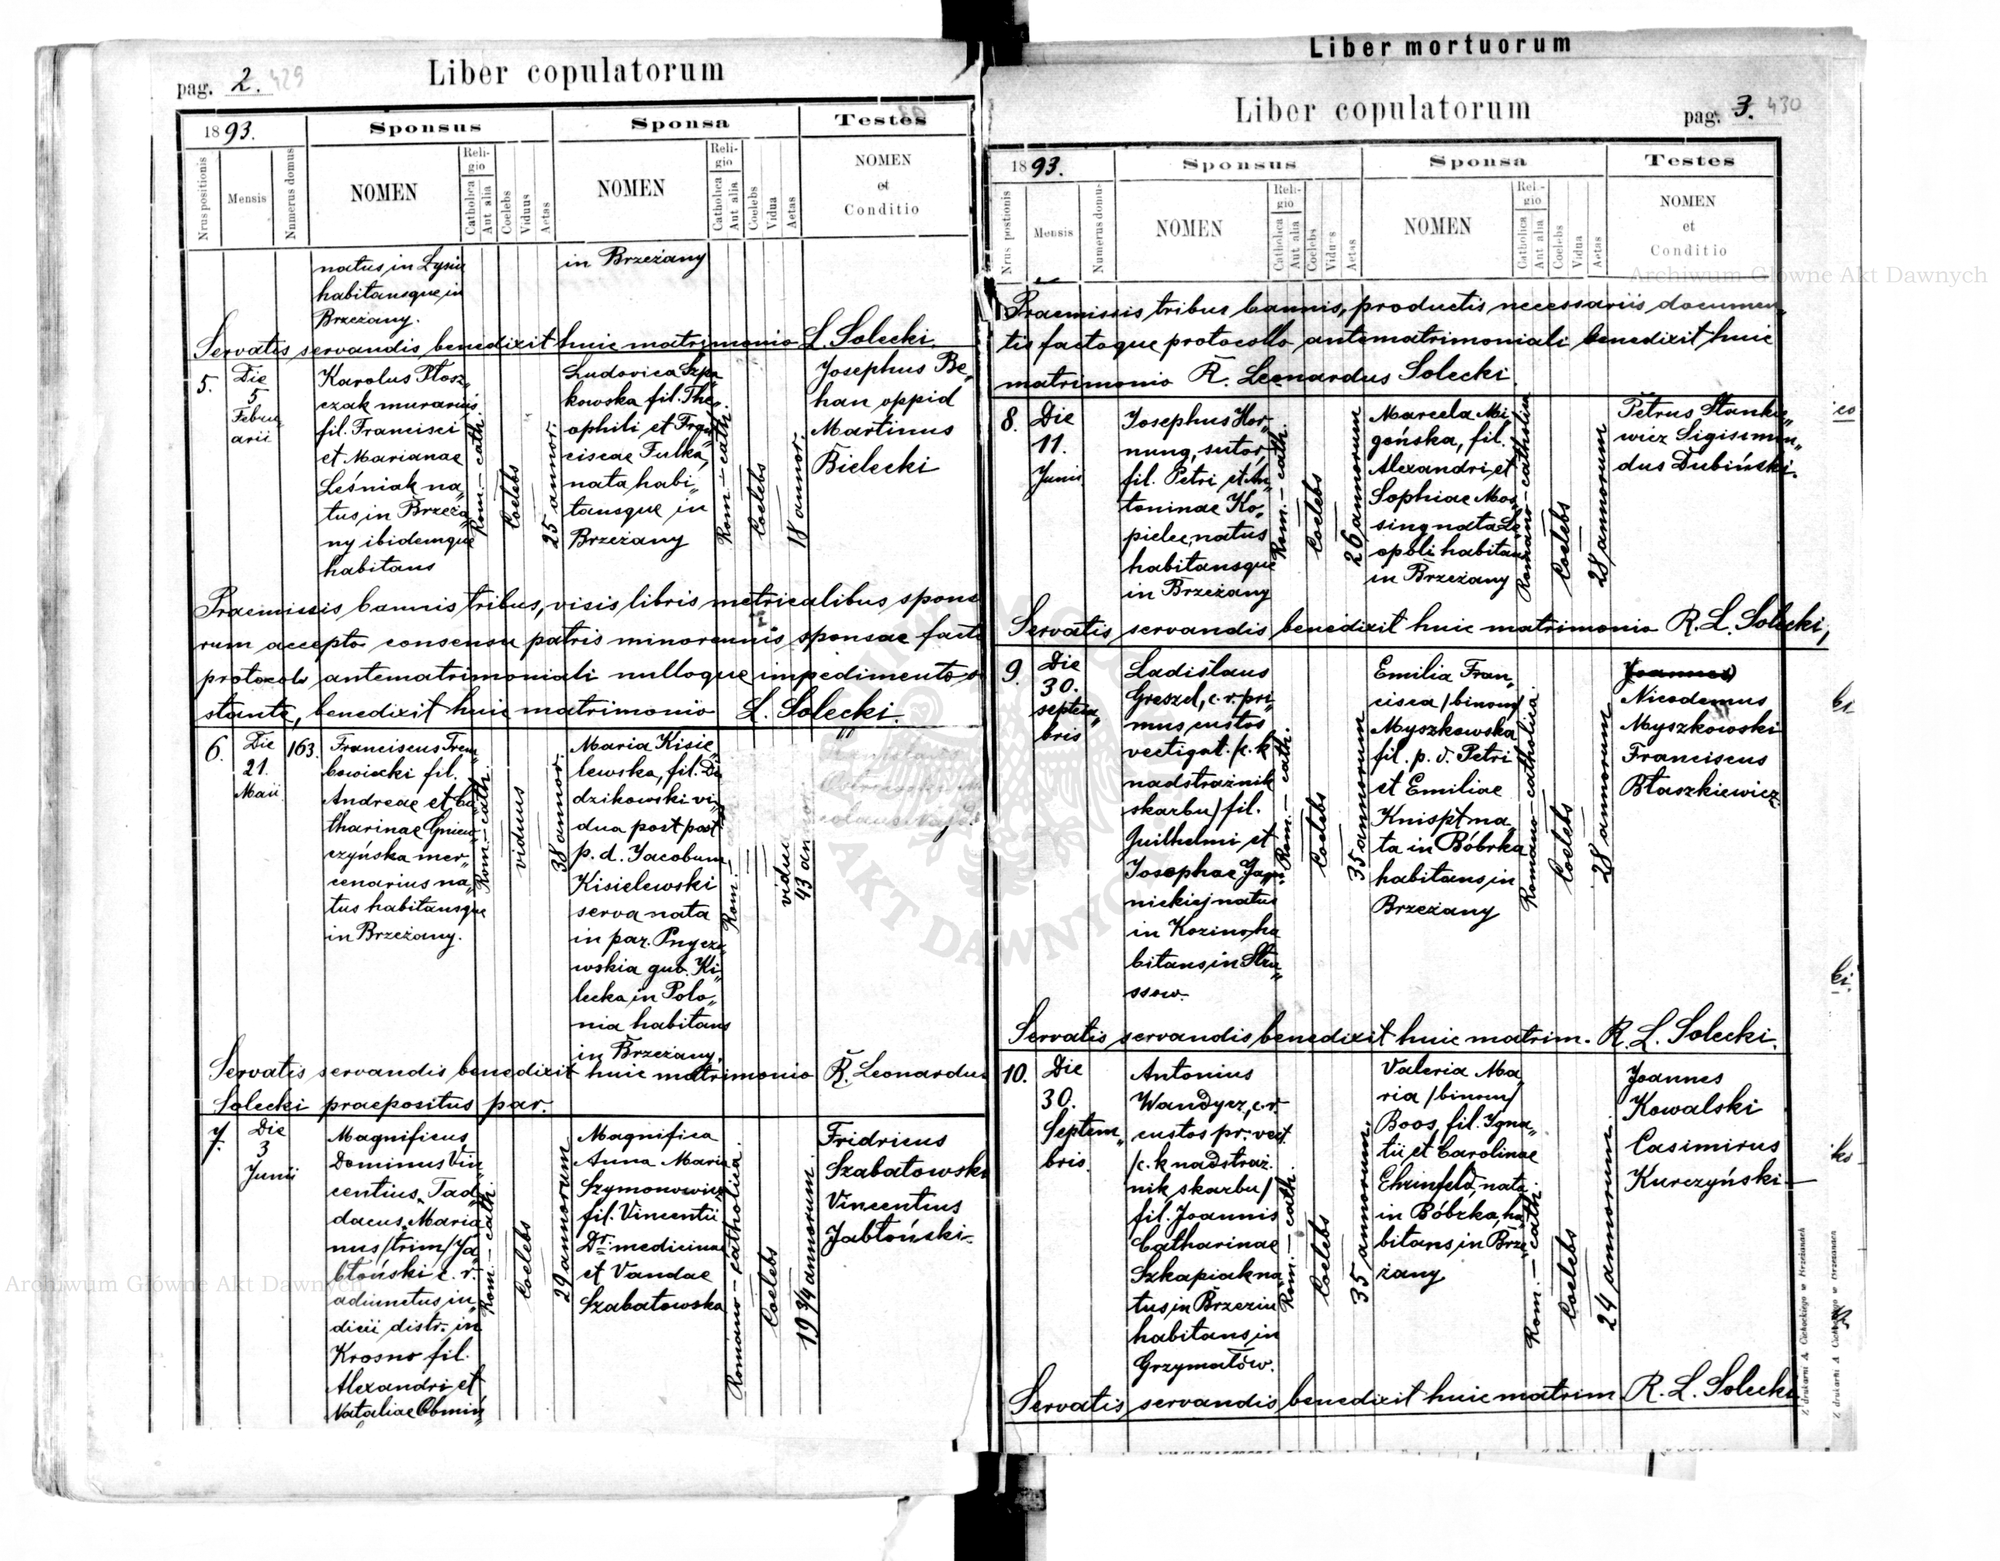 Liber mortuorum
pag. 2. 429
Liber copulatorum
1893.
Sponsus
Sponsa
Testes
Nrus positionis
Mensis
Numerus domus
NOMEN
Religio
Catholica
Aut alia
Coelebs
Viduus
Aetas
NOMEN
Religio
Catholica
Aut alia
Coelebs
Vidua
Aetas
NOMEN
et
Conditio
natus in Lysiu
habitansque in
Brzeżany.
in Brzeżany
Servatis servandis benedixit huic matrimonio L. Solecki.
5.
Die
5
Febru
arii
Karolus Ptosz„
czak murarius
fil. Francisci
et Marianae
Leśniak na„
tus in Brzeża„
ny ibidemque
habitans
Rom.-cath.
Coelebs
25 annor.
Ludovica Szpa
kowska fil. The
ophili et Fran
ciscae Fulka,
nata habi„
tansque in
Brzeżany
Rom.-cath.
Coelebs
18 annor.
Josephus Be„
han oppid
Martinus
Bielecki
Praemissis bannis tribus, visis libris metricalibus spons
rum accepto consensu patris minorennis sponsae facto
protocolo antematrimoniali nulloque impedimento o
stante, benedixit huic matrimonio L. Solecki.
6.
Die
21.
Maii
163.
Franciscus Trem„
bowiecki fil.
Andreae et Ca
tharinae Gnieu
czyńska mer„
cenarius na„
tus habitansque
in Brzeżany.
Rom.-cath.
viduus
38 annor.
Maria Kisie„
lewska, fil. Di
dzikowski vi„
dua post post
p. d. Jacobum
Kisielewski
serva nata
in par. Pnycza
wskia gub. Ki„
lecka in Polo„
nia habitans
in Brzeżany.
Rom.-
vidua
43 an
Servatis servandis benedixit huic matrimonio R. Leonardus
Solecki praepositus par.
7.
Die
3
Junii
Magnificus
Dominus Vin
centius, Tad
daeus, Maria
nus /trim/ Ja
błoński c. r.
adiunctus iu„
dicii distr. in
Krosno fil.
Alexandri et
Nataliae Obmiń„
Rom.-cath.
Coelebs
29 annorum
Magnifica
Anna Maria
Szymonowicz
fil. Vincentii
Dr. medicinae
et Vandae
Szabatowska
Romano-catholica.
Coelebs
19 3/4 annorum.
Fridricus
Szabatowski
Vincentius
Jabłoński
Liber copulatorum
pag. 3. 430
1893.
Sponsus
Sponsa
Testes
Nrus positionis
Mensis
Numerus domus
NOMEN
Religio
Catholica
Aut alia
Coelebs
Viduus
Aetas
NOMEN
Religio
Catholica
Aut alia
Coelebs
Vidua
Aetas
NOMEN
et
Conditio
Praemissis tribus bannis, productis necessariis documen„
tis factoque protocollo antematrimoniali benedixit huic
matrimonio R. Leonardus Solecki.
8.
Die
11.
Junii
Josephus Hor„
nung, sutor,
fil. Petri et An„
toninae Ko„
pielec, natus
habitansque
in Brzeżany
Rom.-cath.
Coelebs
26 annorum
Marcela Mi„
gońska, fil.
Alexandri et
Sophiae Mos„
sing nata Le
opoli habitans
in Brzeżany
Romano-catholica
Coelebs
28 annorum
Petrus Stankie„
wicz Sigismun„
dus Dubiński.
Servatis servandis benedixit huic matrimonio R. L. Solecki,
9.
Die
30.
Septem„
bris
Ladislaus
Greszel, c. r. pri„
mus, custos
vectigal. /c. k
nadstrażnik
skarbu/ fil.
Guilhelmi et
Josephae Jap„
nickiej natus
in Kozino, ha
bitans in Stru„
ssow.
Rom.-cath.
Coelebs
35 annorum
Emilia Fran„
cisca /binom/
Myszkowska
fil. p. d. Petri
et Emiliae
Knispt na„
ta in Bóbrka
habitans in
Brzeżany
Romano-catholica
Coelebs
28 annorum
Joannes
Nicodemus
Myszkowski
Franciscus
Błaszkiewicz
Servatis servandis benedixit huic matrim. R. L. Solecki.
10.
Die
30.
Septem„
bris.
Antonius
Wandycz, c. r.
custos pr. vect.
/c. k nadstraż.
nik skarbu/
fil. Joannis
Catharinae
Szkapiak na„
tus in Brzeziu
habitans in
Grzymałów.
Rom.-cath.
Coelebs
35 annorum.
Valeria Ma„
ria /binom/
Boos, fil. Igna„
tii et Carolinae
Ehrinfeld, nata
in Bóbrka, ha„
bitans in Brze„
żany
Rom.-cath.
Coelebs
24 annorum.
Joannes
Kowalski
Casimirus
Kurczyński
Servatis servandis benedixit huic matrim R. L. Solecki
Z drukarni A. Cichockiego w Brzeżanach
Archiwum Główne Akt Dawnych
Archiwum Główne Akt Dawnych
AKT DAWNYCH